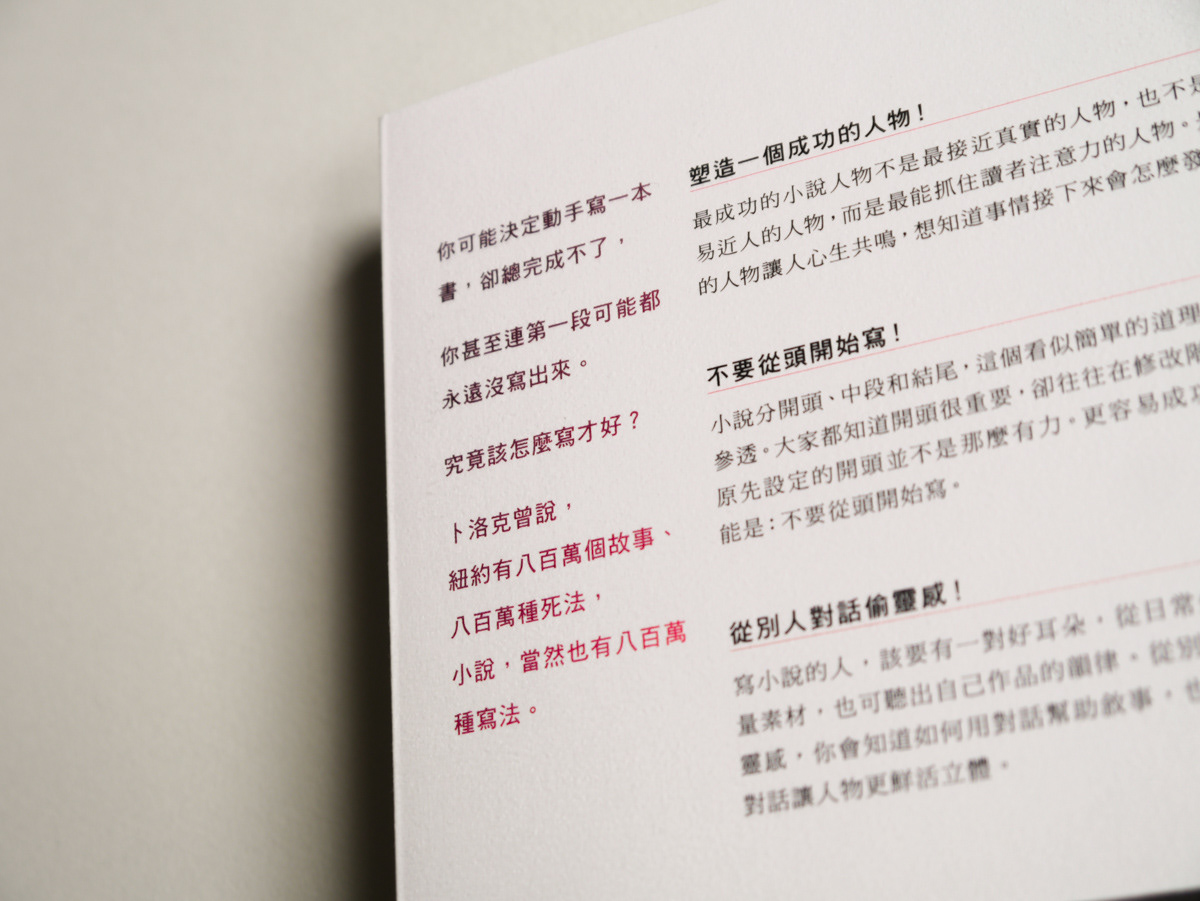 你可能決定動手寫一本
書，卻總完成不了，
你甚至連第一段可能都
永遠沒寫出來。
究竟該怎麼寫才好？
卜洛克曾說，
紐約有八百萬個故事、
八百萬種死法，
小說，當然也有八百萬
種寫法。
塑造一個成功的人物！
最成功的小說人物不是最接近真實的人物，也不是
易近人的人物，而是最能抓住讀者注意力的人物。
的人物讓人心生共鳴，想知道事情接下來會怎麼發
不要從頭開始寫！
小說分開頭、中段和結尾，這個看似簡單的道理
參透。大家都知道開頭很重要，卻往往在修改階
原先設定的開頭並不是那麼有力。更容易成功
能是：不要從頭開始寫。
從別人對話偷靈感！
寫小說的人，該要有一對好耳朵，從日常
量素材，也可聽出自己作品的韻律。從別
靈感，你會知道如何用對話幫助敘事，也
對話讓人物更鮮活立體。